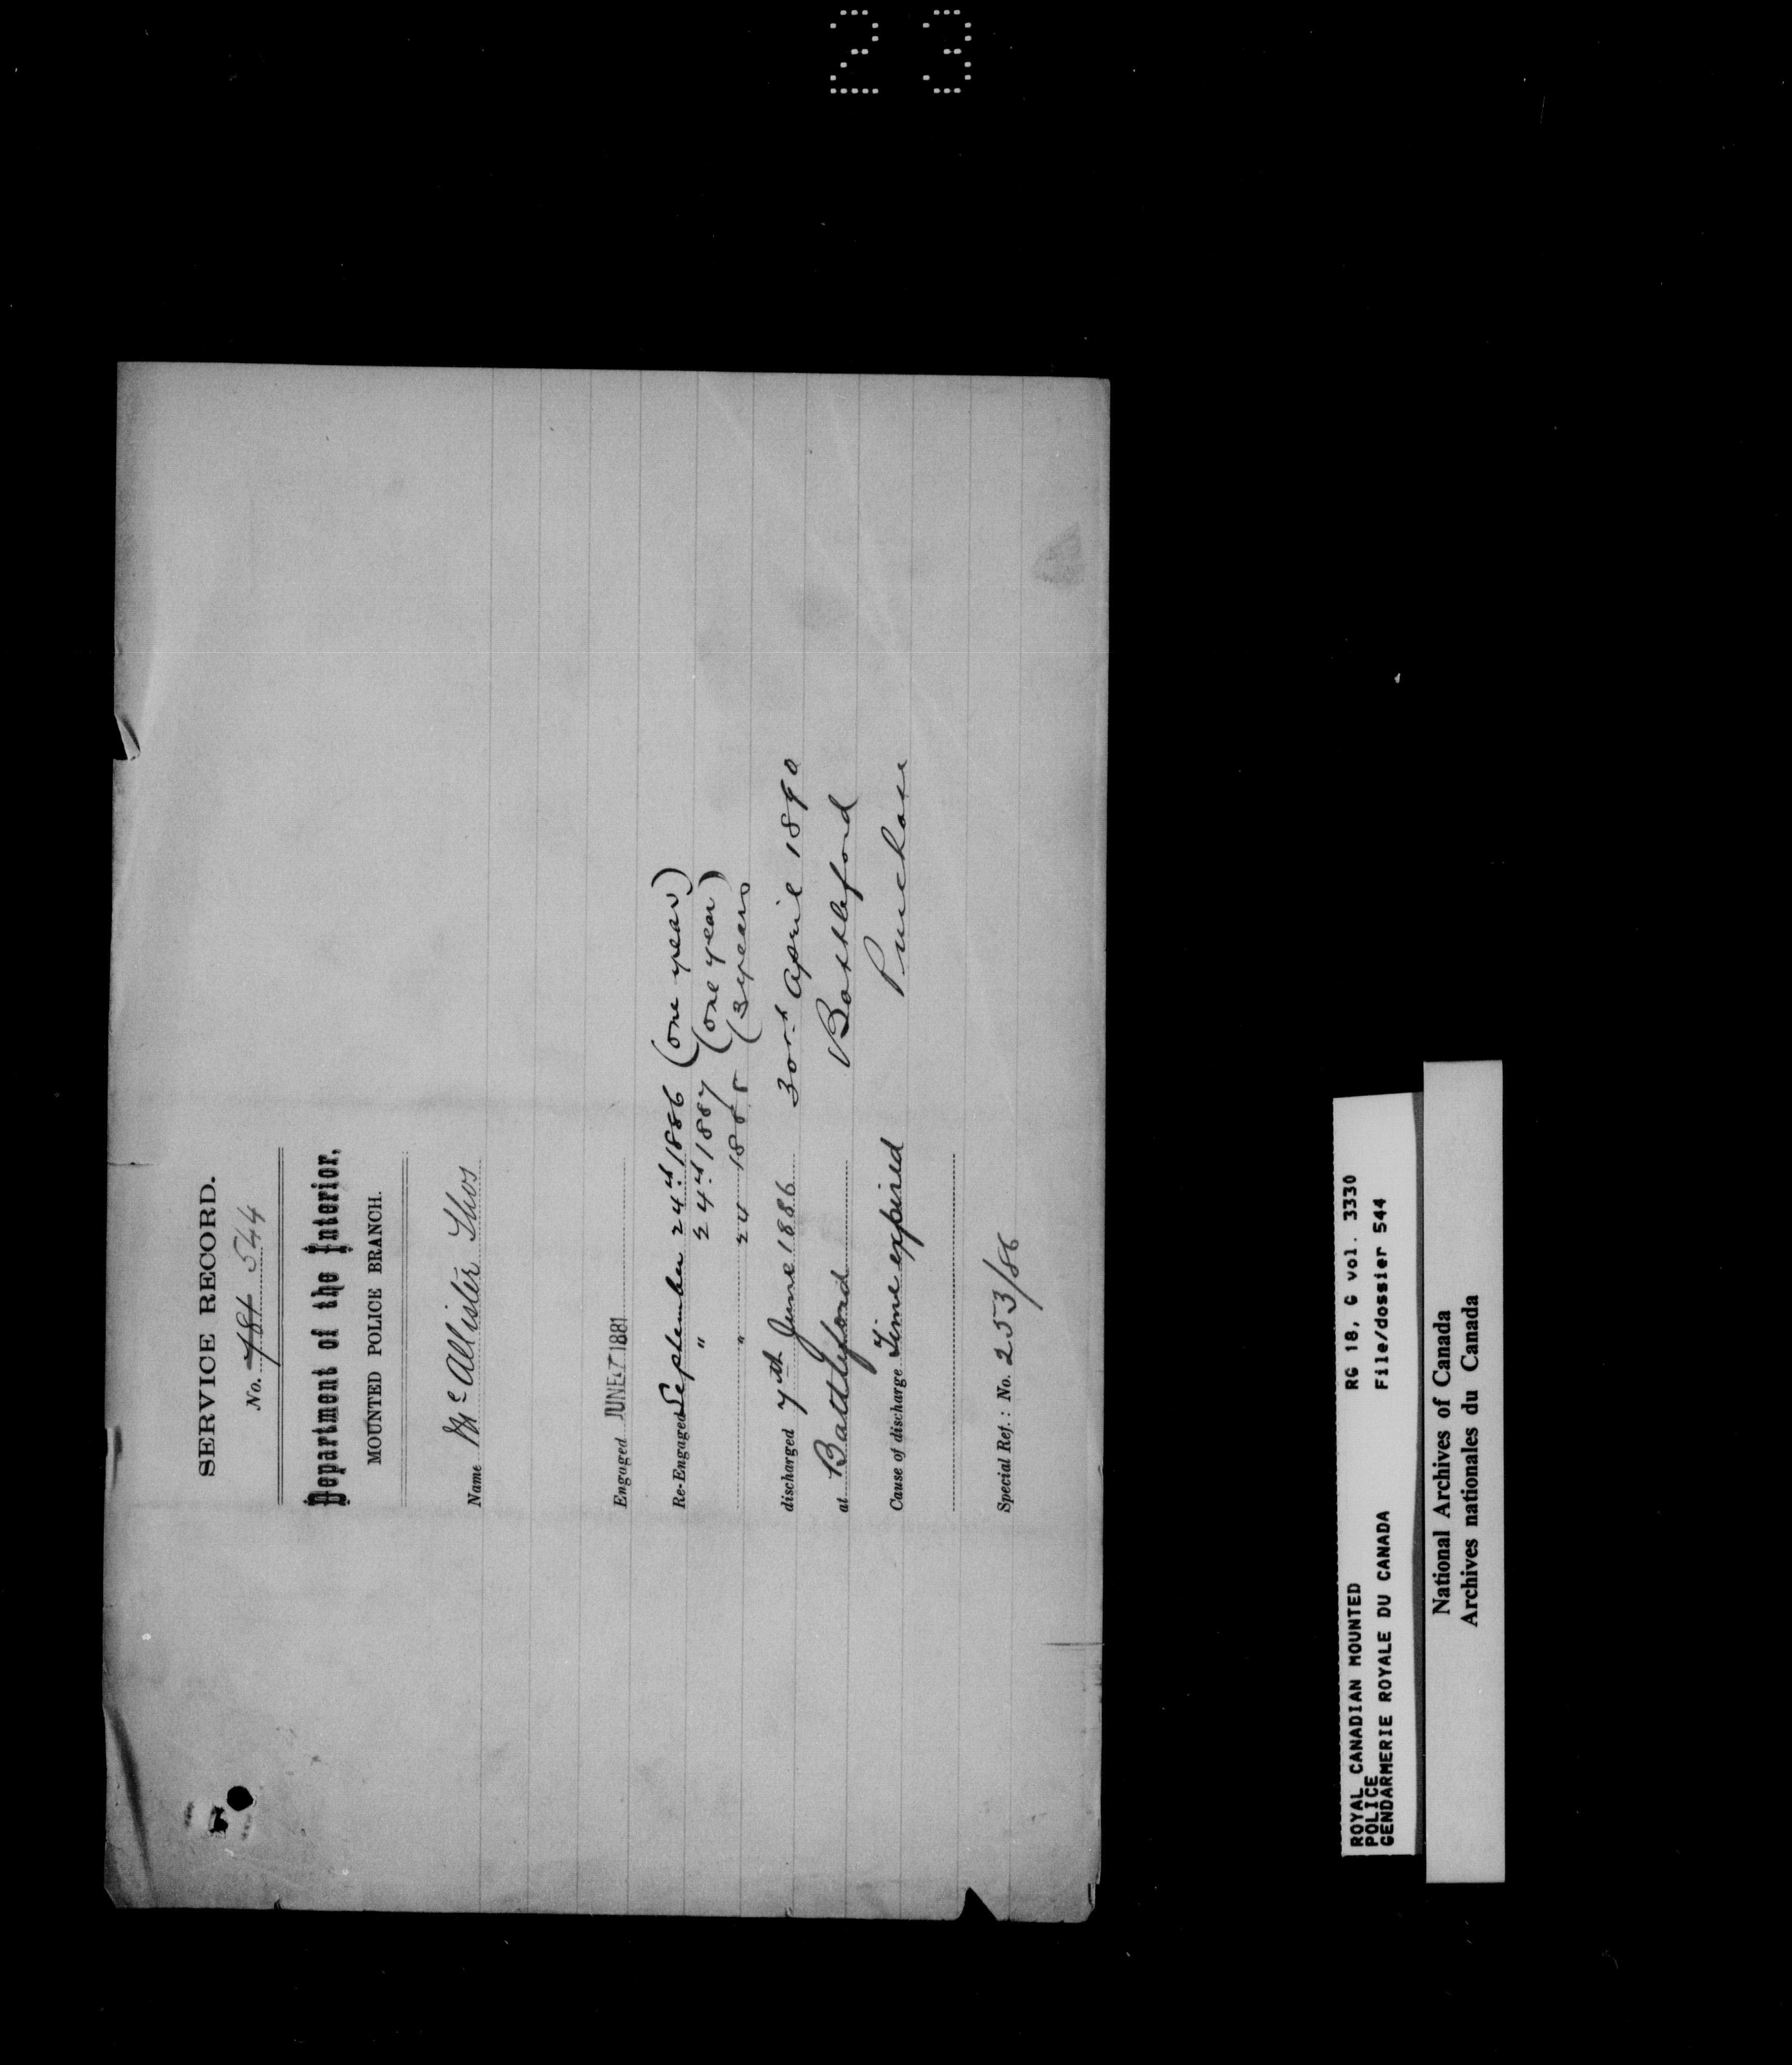 23
SERVICE RECORD.
No. 481 544
Department of the Interior,
MOUNTED POLICE BRANCH.
Name McAllister Thos
Engaged JUNE 7 1881
Re-Engaged September 24th 1886 (one year)
" 24th 1887 (one year)
" 24 1888 (3 years
discharged 7th June 1886 30th April 1890
at Battleford Battleford
Cause of discharge Time expired Purchase
Special Ref.: No. 253/86
ROYAL CANADIAN MOUNTED RG 18, C vol. 3330
POLICE
GENDARMERIE ROYALE DU CANADA File/dossier 544
National Archives of Canada
Archives nationales du Canada